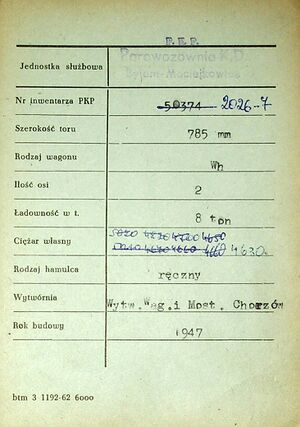 P.K.P.
Parowozownia K.D.
Jednostka służbowa
Bytom-Maciejkowice
Nr inwentarza PKP 50374 2026-7
Szerokość toru 785 mm
Rodzaj wagonu Wh
Ilość osi 2
Ładowność w t. 8 ton
Ciężar własny 4820 4700 4650
4640 4660 4660 4630
Rodzaj hamulca ręczny
Wytwórnia Wytw.Wag.i Most. Chorzów
Rok budowy 1947
btm 3 1192-62 6000